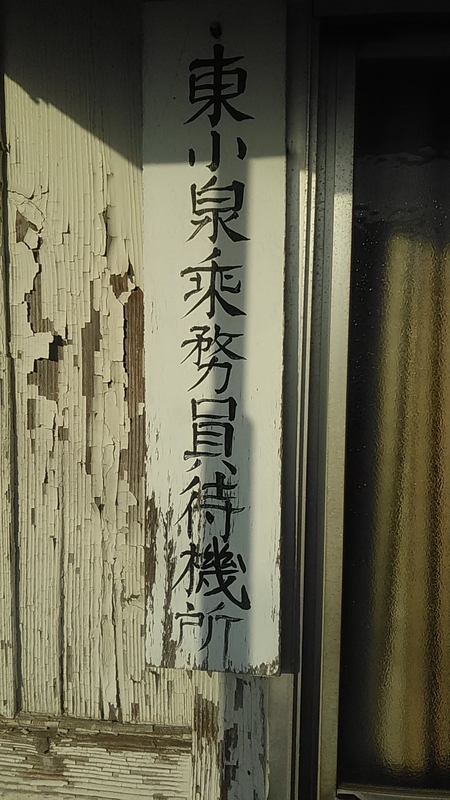 東小泉乗務員待機所